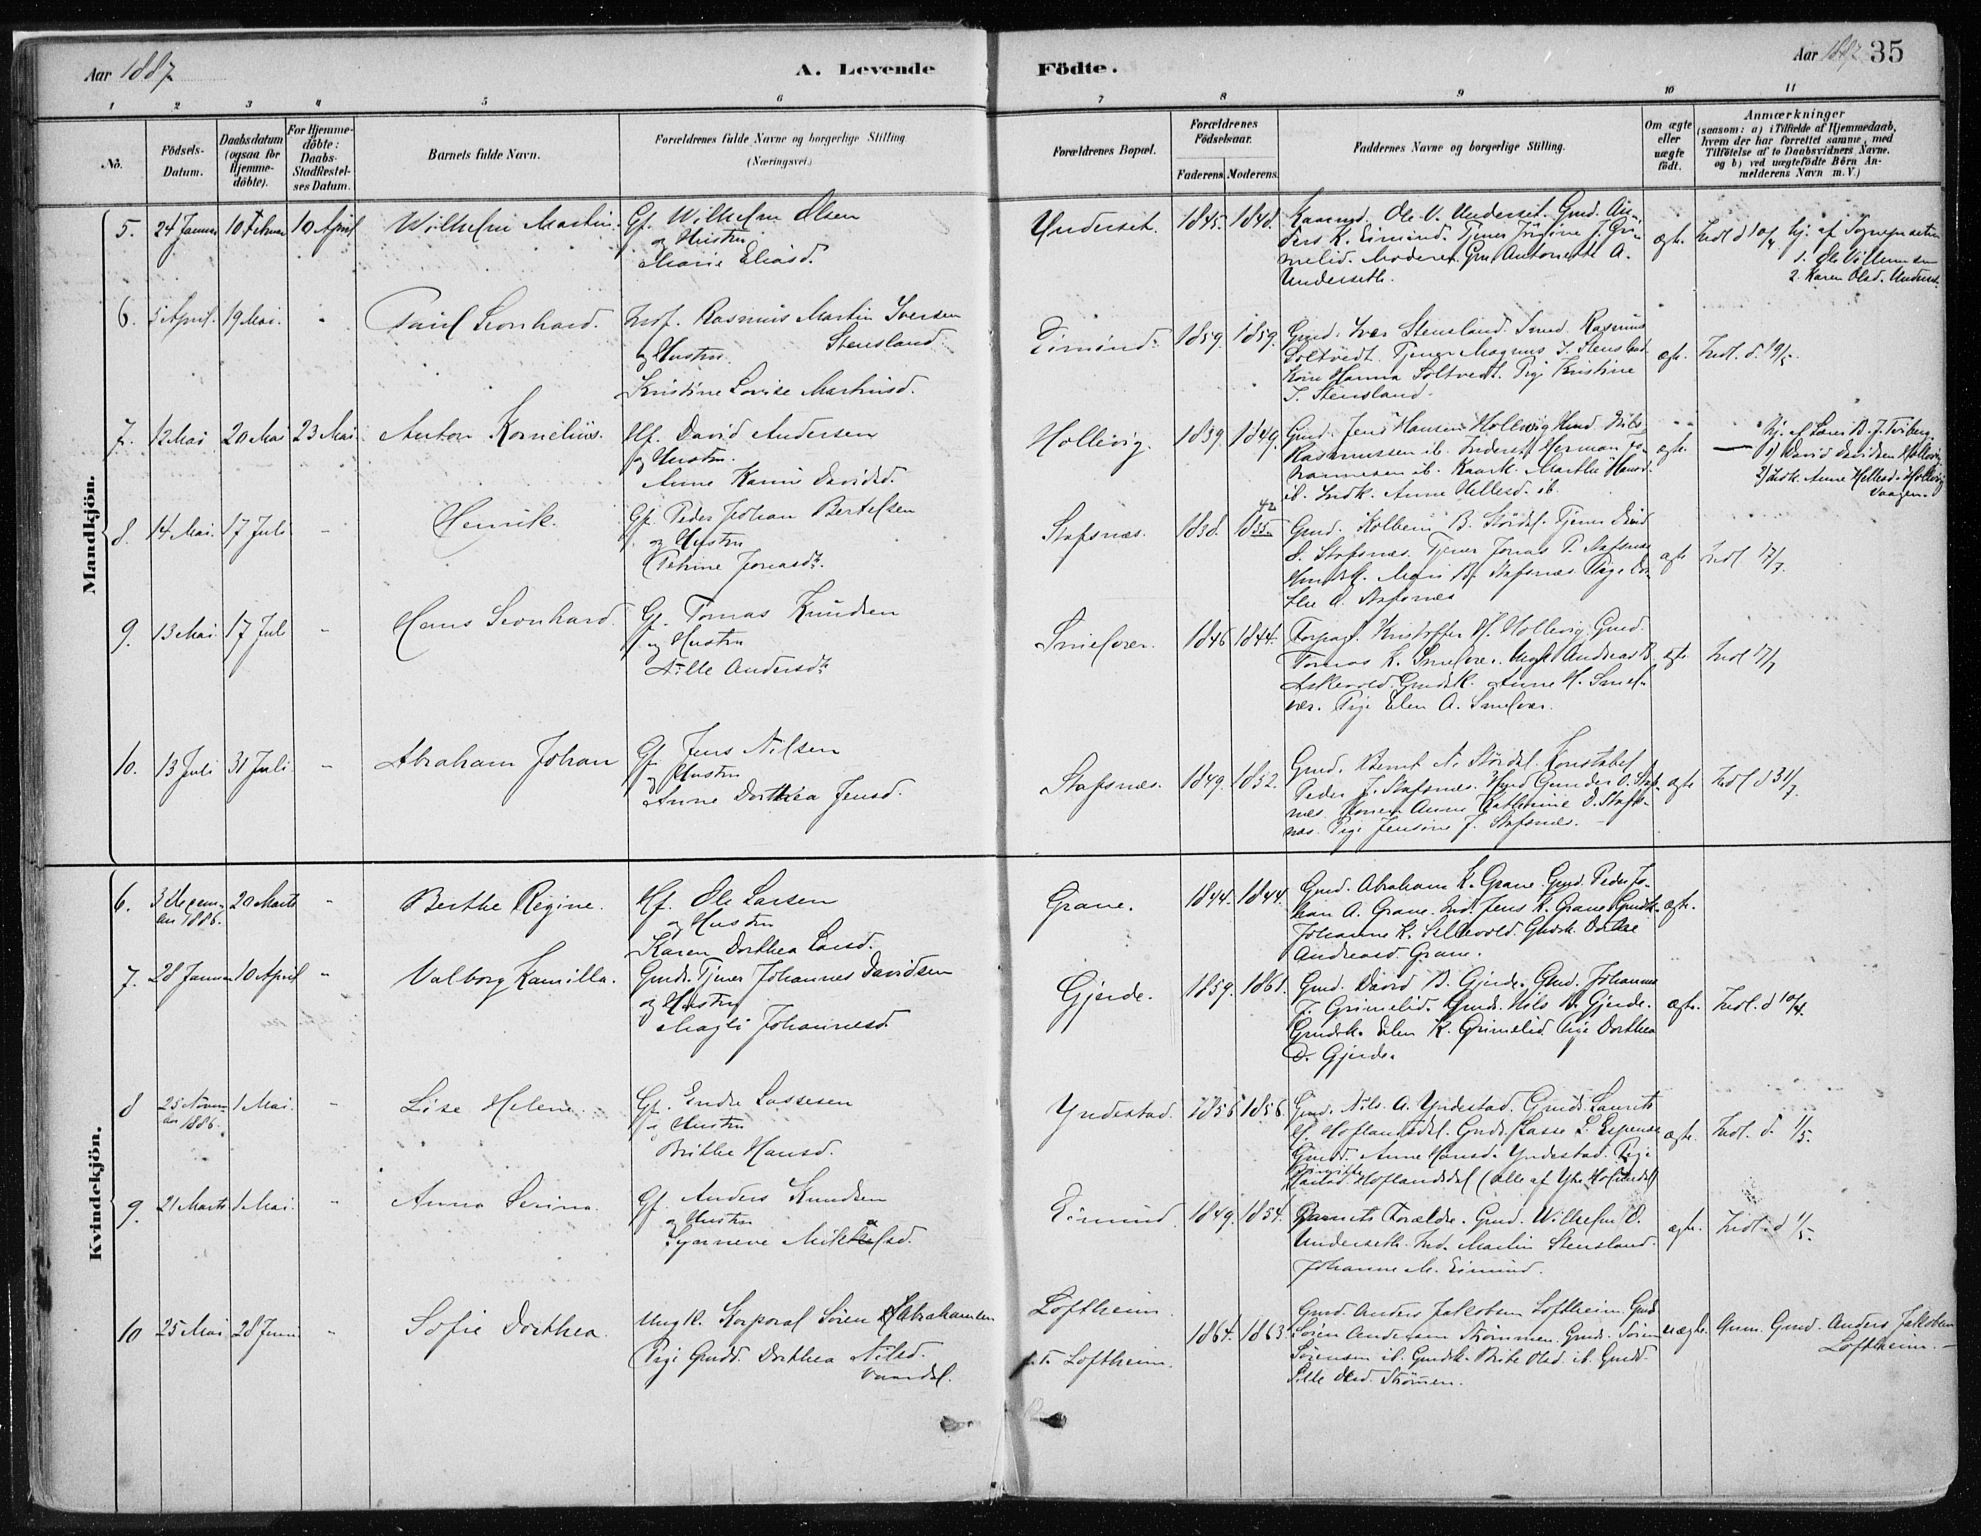 Aar 1887
A. Levende
Födte.
Aar 1887
35
1 2 3 4 5 6 7 8 9 10 11
No.
Födsels-Datum.
Daabsdatum (ogsaa for Hjemme-döbte).
For Hjemme-döbte: Daabs-Stadfæstel-ses Datum.
Barnets fulde Navn.
Forældrenes fulde Navne og borgerlige Stilling
(Næringsvei.)
Forældrenes Bopæl.
Forældrenes Födselsaar.
Faderens. Moderens.
Faddernes Navne og borgerlige Stilling.
Om ægte eller uægte födt.
Anmærkninger
(saasom: a) i Tilfælde af Hjemmedaab,
hvem der har forrettet samme, med
Tilföielse af to Daabsvidners Navne,
og b) ved uægtefödte Börn An-
melderens Navn m. V.)
Mandkjön.
5. 24 Januar 10 Februar 10 April Wilhelm Martin. Gf. Wilhelm Olsen
og Hustru
Marie Eliasd.
Underset. 1845. 1848.
Ole V. Underset. Gmd. An-
ders K. Eimind. Tjener J. Gri-
melid. Moderen. Antonette A.
Underseth.
ægte. Indl d 10/4 hj. af Sognepræsten
1. Ole Villumsen
2. Karen Olsd. Underset.
6. 5 April. 19 Mai. Paul Leonhard. Indf. Rasmus Martin Iversen
og Hustru Stensland
Kristine Lovise Martinusd.
Eimind. 1859. 1859.
Gmd. Iver Stensland. Rasmus
Soltvedt. Tjener Magnus I. Stensland
Kone Hanna Soltvedt. Pige Kristine
I. Stensland.
ægte. Indl. d. 19/5.
7. 12 Mai 20 Mai 23 Mai. Anton Kornelius. Hf. David Andersen
og Hustru.
Anne Karine Davidsd.
Hollevig. 1839. 1849.
Gmd. Jens Hansen Hollevig Nils
Rasmussen ib. Inderst Herman Jo-
hannesen ib. Kaark. Marthe Hansd.
ib. Indk. Anne Hellesd. ib.
ægte. — hj. af Lærer B. J. Teiberg.
1) David Davidsen Hollevig
2) Indk. Anne Hellesd. Hollevig
vaagen.
8. 14 Mai. 17 Juli - Henrik. Gf. Peder Johan Bertelsen
og Hustru
Petrine Jonasdr.
Stafsnæs. 1838. 1855. 42
Gmd. Kolbein B. Stördal. Tjener
Stafsnæs. Tjener Jonas P. Stafsnæs
Stafsnæs Pige Do-
Stafsnæs
ægte Indl 17/7
9. 13 Mai. 17 Juli - Hans Leonhard. Gf. Tomas Knudsen
og Hustru
Nille Andersdr.
Smelvær. 1846 1844.
Forpagt. Kristoffer H. Hollevig Gmd.
Tomas K. Smelvær. Ungk. Andreas B.
Askevold. Gmdsk. Anne H. Smel-
vær. Pige Elen A. Smelvær.
ægte. Indl 17/7
10. 13 Juli 31 Juli - Abraham Johan Gf. Jens Nilsen
og Hustru
Anne Dorthea Jensd.
Stafsnæs. 1849. 1852.
Gmd. Bernt N. Stördal. Konstabel
Peder J. Stafsnæs. Gunder O. Staf-
næs. Konen Anne Kathrine D. Stafs-
næs. Pige Jensine J. Stafsnæs.
ægte Indl d 31/7
Kvindekjön.
6. 3 Decem-
ber 1886. 20 Marts " Berthe Regine. Hf. Ole Larsen
og Hustru
Karen Dorthea Larsd.
Grane. 1844. 1844.
Gmd. Abraham K. Grane. Gmd. Peder Jo-
han A. Grane. Ind. Jens K. Grane Gmdk.
Johanne K. Sellevold. Gmdk. Dorthe
Andreasd. Grane.
ægte.
7. 28 Januar 10 April " Valborg Kamilla. Gmds. Tjener Johannes Davidsen
og Hustru
Magli Johannesd.
Gjerde. 1859. 1861.
Gmd. David D. Gjerde. Gmd. Johannes
J. Grimelid. Gmds. Nils D. Gjerde.
Gmdsk. Elen K. Grimelid. Pige Dorthea
D. Gjerde.
ægte. Indl. d 10/4.
8 25 Novem-
ber 1886. 1 Mai. " Lise Helene Gf. Endre Lassesen
og Hustru
Brithe Hansd.
Yndestad. 1856 1856.
Gmd. Nils A. Yndestad. Gmds. Laurits
H. Hoflandsdal. Gmds. Lasse L. Espenæs
Gmdd. Anne Hansd. Yndestad. Pige
Birgitte
Hoflandsdal (alle af Ytre Holmedal)
ægte. Indl. d. 1/5.
9. 21 Marts 1 Mai. " Anna Serina. Gf. Anders Knudsen
og Hustru
Synneve Mikkelsd.
Eimind. 1849. 1854.
Barnets Forældre. Gmd. Wilhelm O.
Underseth. Ind. Martin Stensland.
Johanne M. Eimind.
ægte. Indl. d 1/5.
10 25 Mai 28 Juni " Sofie Dorthea. Ungk. Korporal Sören Abrahamsen
Pige Gmdd. Dorthea Nilsd.
Vaardal.
Loftheim
p.t. Loftheim. 1864. 1863.
Gmd. Anders Jakobsen Loftheim. Gmds
Sören Andersen Strömmen. Gmds. Sören
Sörensen ib. Gmdsk. Brite Olsd. ib. Gmdd
Olsd. Strömmen.
uægte. Anm. Gmd. Anders Jakobsen
Loftheim.